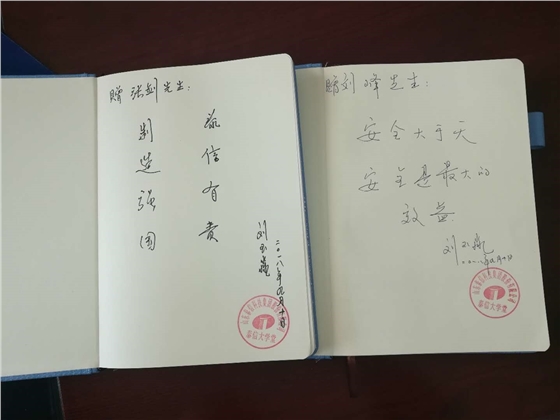 赠张剑先生:
制造强国
信有责
刘玉
二〇一八年九月十日
赠刘峰先生:
安全大于天
安全是最大的
效益
刘玉
信大学堂